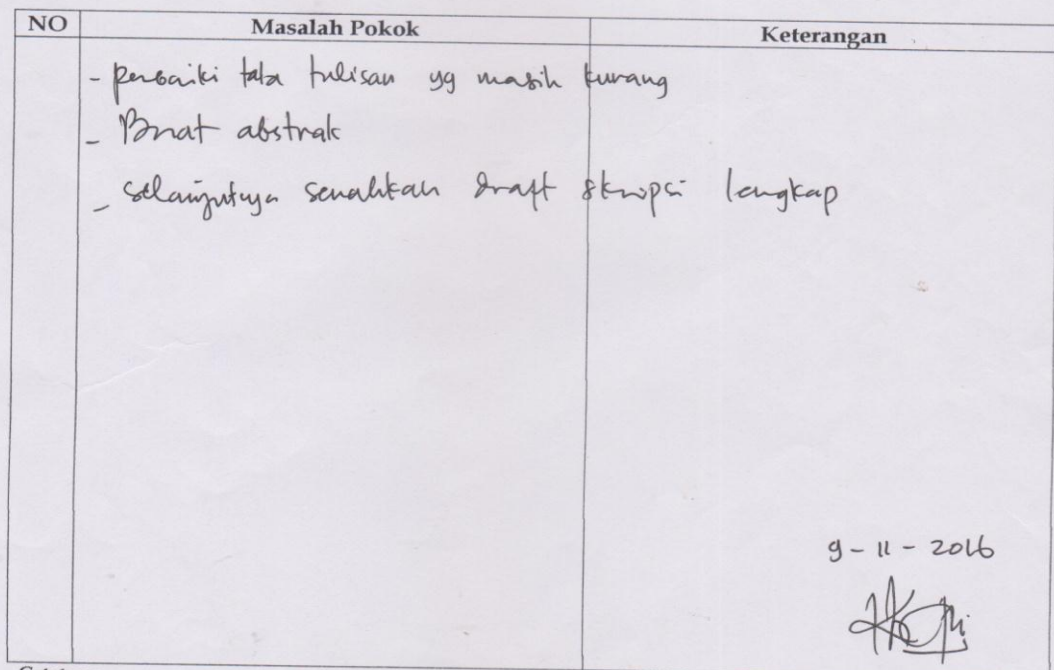 NO Masalah Pokok Keterangan
- perbaiki tata tulisan yg masih kurang
- Buat abstrak
- selanjutnya serahkan draft skripsi lengkap
9-11-2016